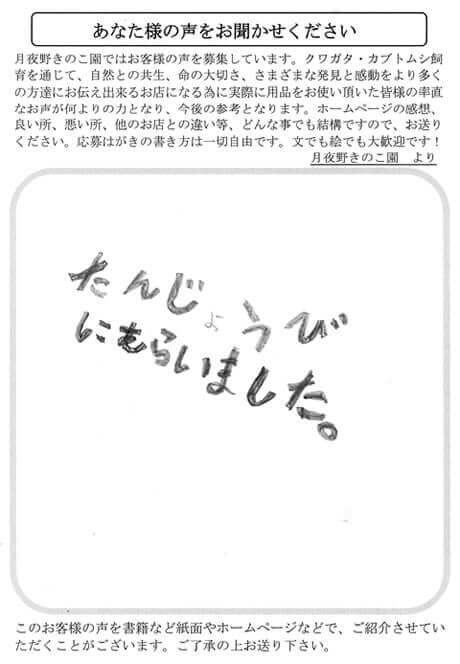 あなた様の声をお聞かせください
月夜野きのこ園ではお客様の声を募集しています。クワガタ・カブトムシ飼
育を通じて、自然との共生、命の大切さ、さまざまな発見と感動をより多く
の方達にお伝え出来るお店になる為に実際に用品をお使い頂いた皆様の率直
なお声が何よりの力となり、今後の参考となります。ホームページの感想、
良い所、悪い所、他のお店との違い等、どんな事でも結構ですので、お送り
ください。応募はがきの書き方は一切自由です。文でも絵でも大歓迎です！
月夜野きのこ園　より
たんじょうび
にむらいました。
このお客様の声を書籍など紙面やホームページなどで、ご紹介させてい
ただくことがございます。ご了承の上お送り下さい。